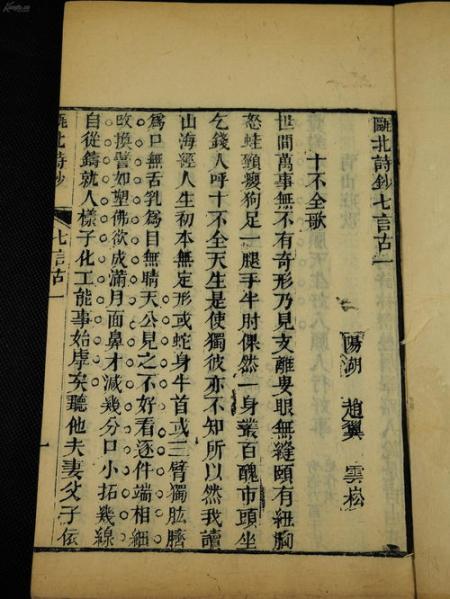 甌北詩鈔七言古一
陽湖 趙翼 雲崧
十不全歌
世間萬事無不有奇形乃見支離叟眼無縫頤有紐胸
怒蛙頸癭狗足一腿手半肘倮然一身叢百醜市頭坐
乞錢人呼十不全天生是使獨彼亦不知所以然我讀
山海經人生初本無定形或蛇身牛首或三臂獨肱臍
為口無舌乳為目無睛天公見之不好看逐件端相細
改換譬如塑佛欲成滿月面鼻才減幾分口小拓幾線
自從鑄就人樣子化工能事始庤矣聽他夫妻父子依
甌北詩鈔
七言古一
一